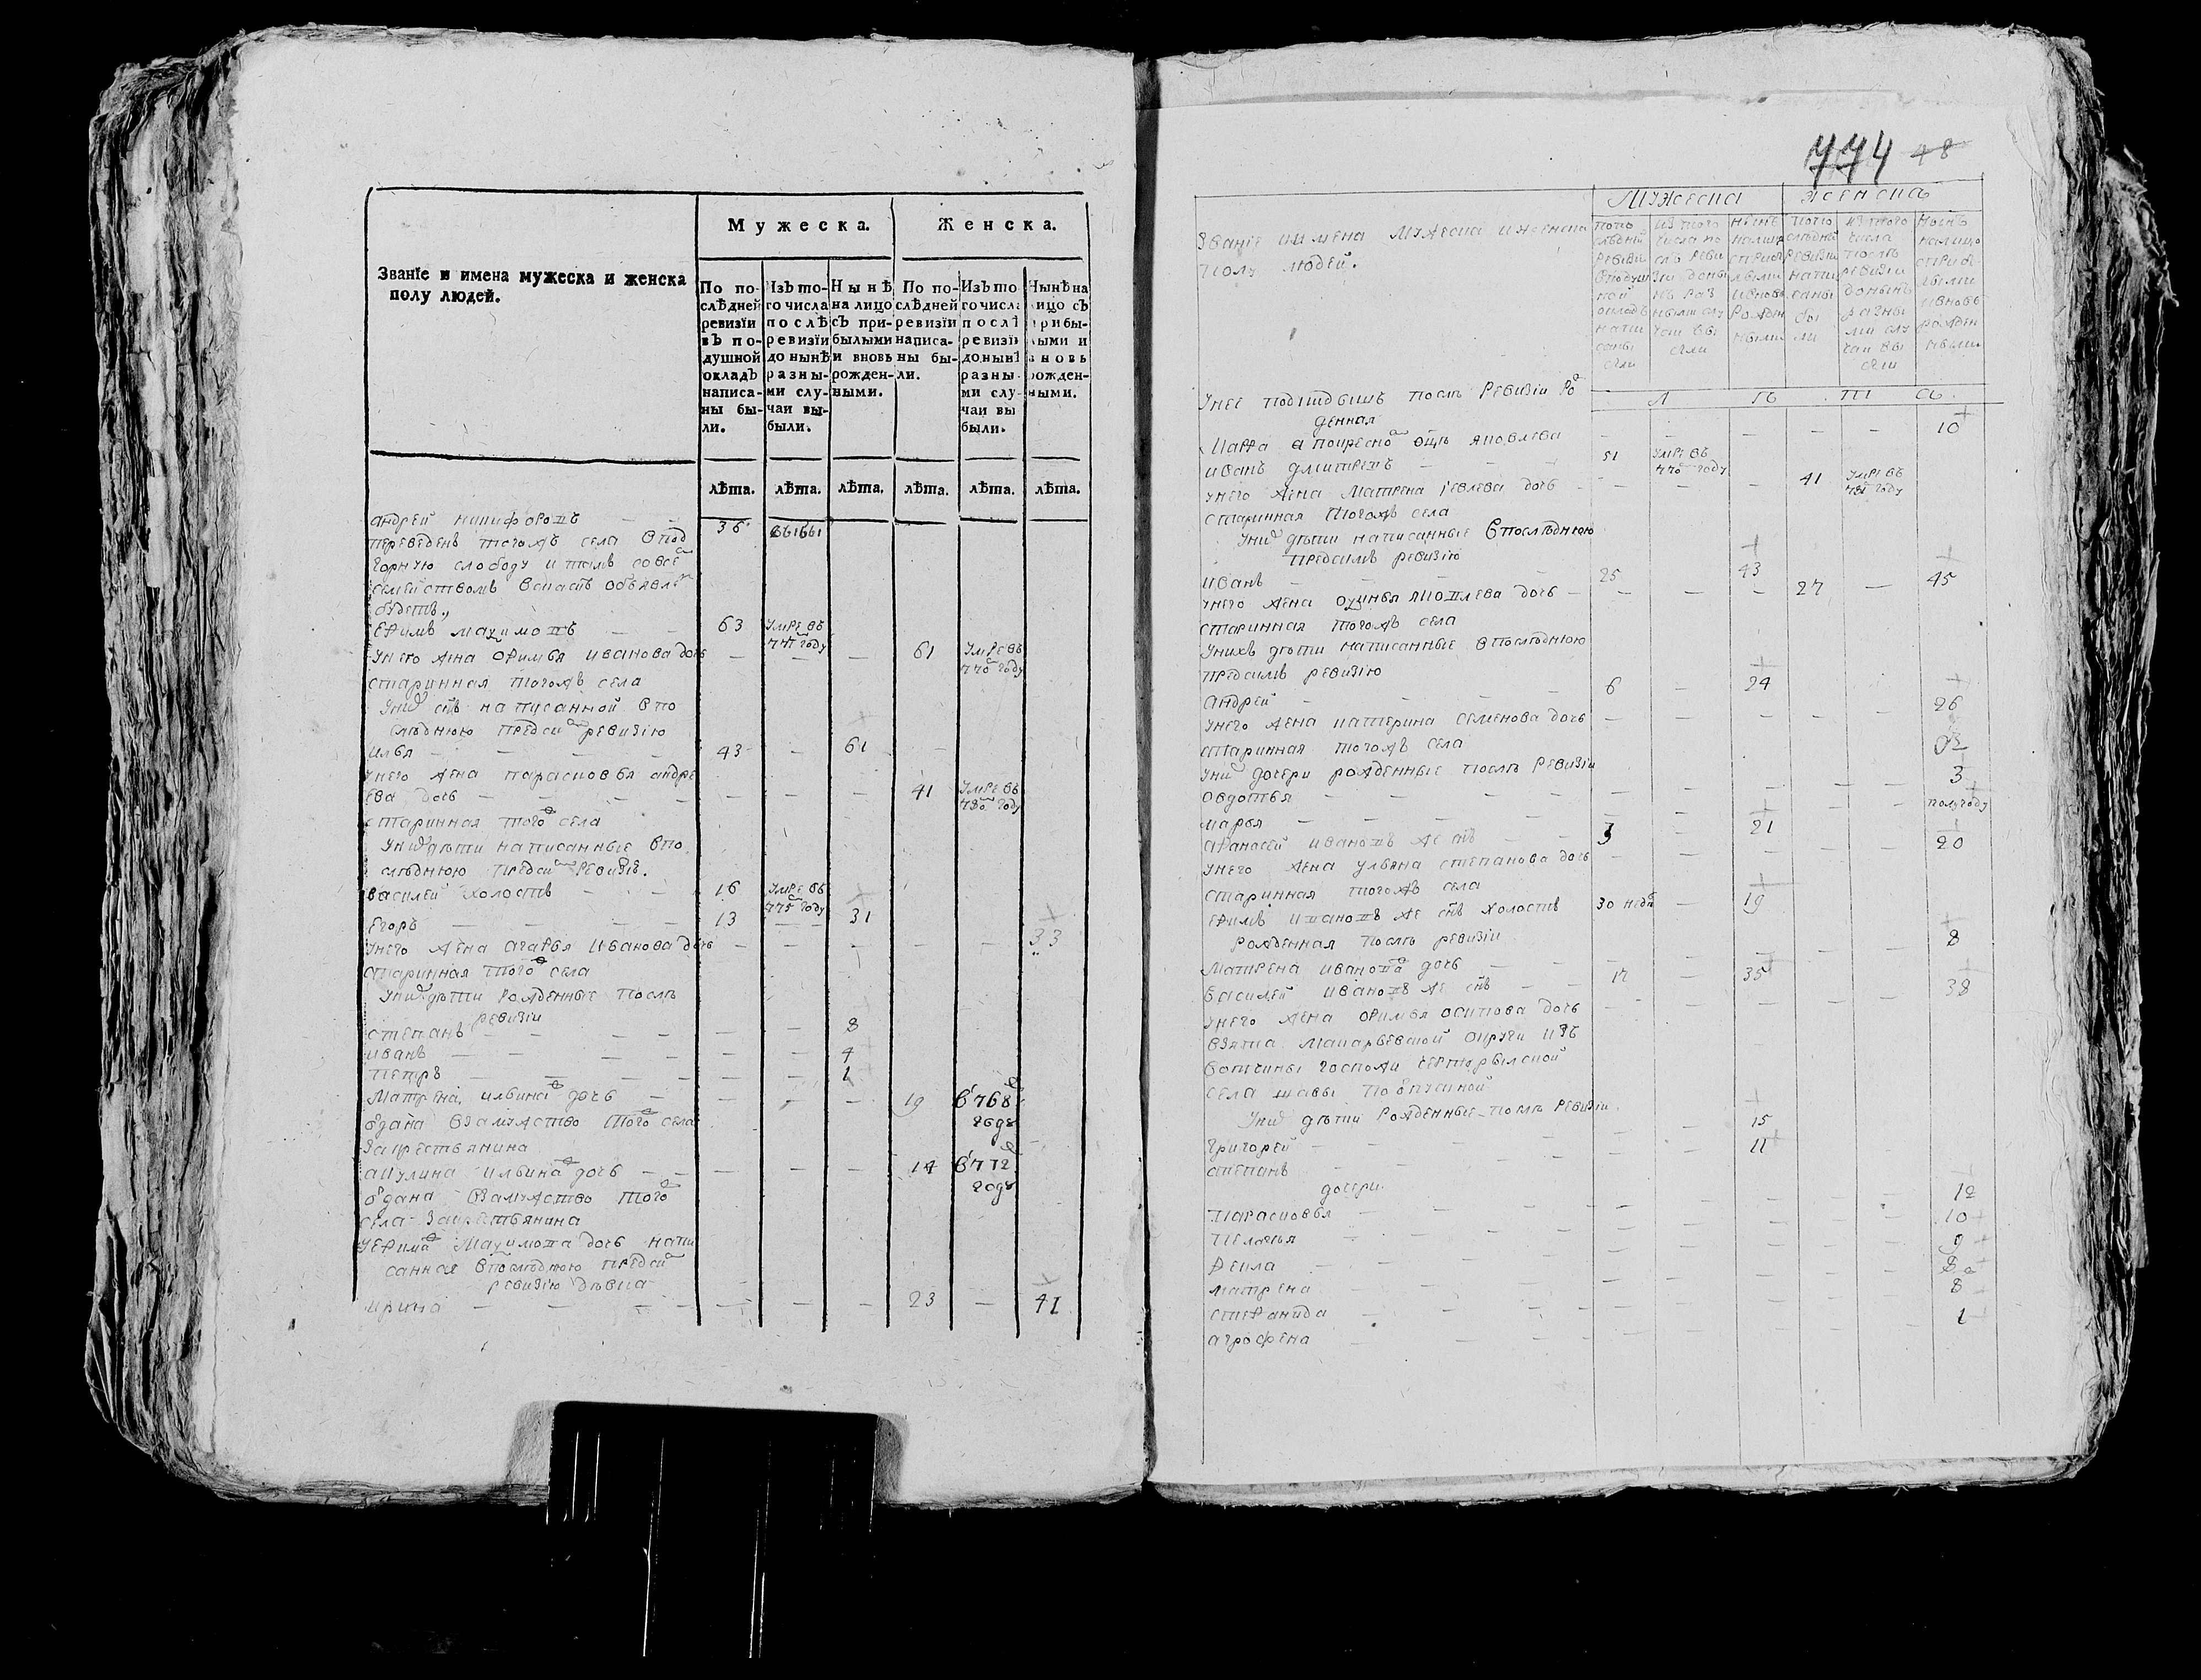 Званїе и имена мужеска и женска
полу людей.
Мужеска.
Женска.
По по-
слѣдней
ревизїи
въ по-
душной
окладъ
написа-
ны бы-
ли.
Изъ то-
го числа
послѣ
ревизїи
до нынѣ
разны-
ми слу-
чаи вы-
были.
Нынѣ
на лицо
съ при-
былыми
и вновь
рожден-
ными.
По по-
слѣдней
ревизїи
написа-
ны бы-
ли.
Изъ то
го числа
послѣ
ревизїи
до нынѣ
разны-
ми слу-
чаи вы
были.
Нынѣ на
лицо съ
прибы-
лыми и
вновь
рожден-
ными.
лѣта. лѣта. лѣта. лѣта. лѣта. лѣта.
андрей никифоровъ — 36 выбы
переведенъ тогожъ села в под
горную слободу и тамъ со все
семействомъ
будетъ
ефимъ — 63 умре въ
771 году
унего жена офимья иванова дочь — — — 61 умре въ
770 году
старинная тогожъ села
уних сынъ написанной в по
слѣднюю пред сим ревизїю
илья — 43 — 61 —
унего жена парасковья андре
ева дочь — — — — 41 умре въ
780 году
старинная того села
уних дѣти написанные в по
слѣднюю пред сим ревизїю.
василей холостъ — 16 умре въ
775 году
егоръ — 13 — 31
унего жена агафья иванова дочь — — — — — 33
старинная того села
уних дѣти рожденные послѣ
ревизїи
степанъ — — — 8
иванъ — — — 4
петръ — — — 1
матрена ильина дочь — — — — 19 в 768
годѣ
одана взамужство того села
за крестьянина
акулина ильина дочь — — — — 14 в 772
годѣ
одана взамужство того
села за крестьянина
дочь напи
санная в послѣднюю пред сим
ревизїю дѣвка
ирина — — — — 23 — 41
774 48
Званїе и имена мужеска и женска
полу людей.
мужеска
женска
по по
слѣдней
ревизи
в подуш
ной
окладъ
напи
саны
были
из того
числа по
слѣ реви
зїи до ны
нѣ раз
ными слу
чаи вы
были
нынѣ
налицо
с прибы
лыми
и вновь
рожден
ными
по по
слѣдней
ревизїи
напи
саны
бы
ли
из того
числа
послѣ
ревизїи
до нынѣ
разны
ми слу
чаи вы
были
нынѣ
налицо
с прибы
лыми
и вновь
рожден
ными
Л ѣ т а
унее послѣ ревизїи ро
денная
а по крестном отцѣ яковлева — — — — — 10
иванъ — 51 умре въ
770 году
унего жена матрена дочь — — — 41 умре въ
781 году
старинная тогожъ села
уних дѣти написанные в послѣднюю
пред симъ ревизїю
иванъ — 25 43
унего жена дочь — — — — 27 — 45
старинная тогожъ села
унихъ дѣти написанные в послѣднюю
пред симъ ревизїю
андрей — 6 — 24
унего жена катерина семенова дочь — — — — — 26
старинная тогожъ села
уних дочери рожденные послѣ ревизїи
овдотья — — — — — 3
марья — — — — — полугоду
афанасей ивановъ же сынъ — 3 — 21
унего жена ульяна степанова дочь — — — — — 20
старинная тогожъ села
ефимъ ивановъ же сынъ холостъ 30 недѣ — 19
рожденная послѣ ревизїи
матрена иванова дочь — — — — — 8
василей ивановъ же сынъ — 17 — 35
унего жена офимья осипова дочь — — — — — 38
взята макарьевской округи изъ
вотчины госпожи
села
уних дѣти рожденные послѣ ревизїи
григорей — — — 15
степанъ — — 11
дочери
парасковья — — — — — 12
пелагея — — — — — 10
фекла — — — — — 9
матрена — — — — — 8
стефанида — — — — — 8
агрофена — — — — — 1